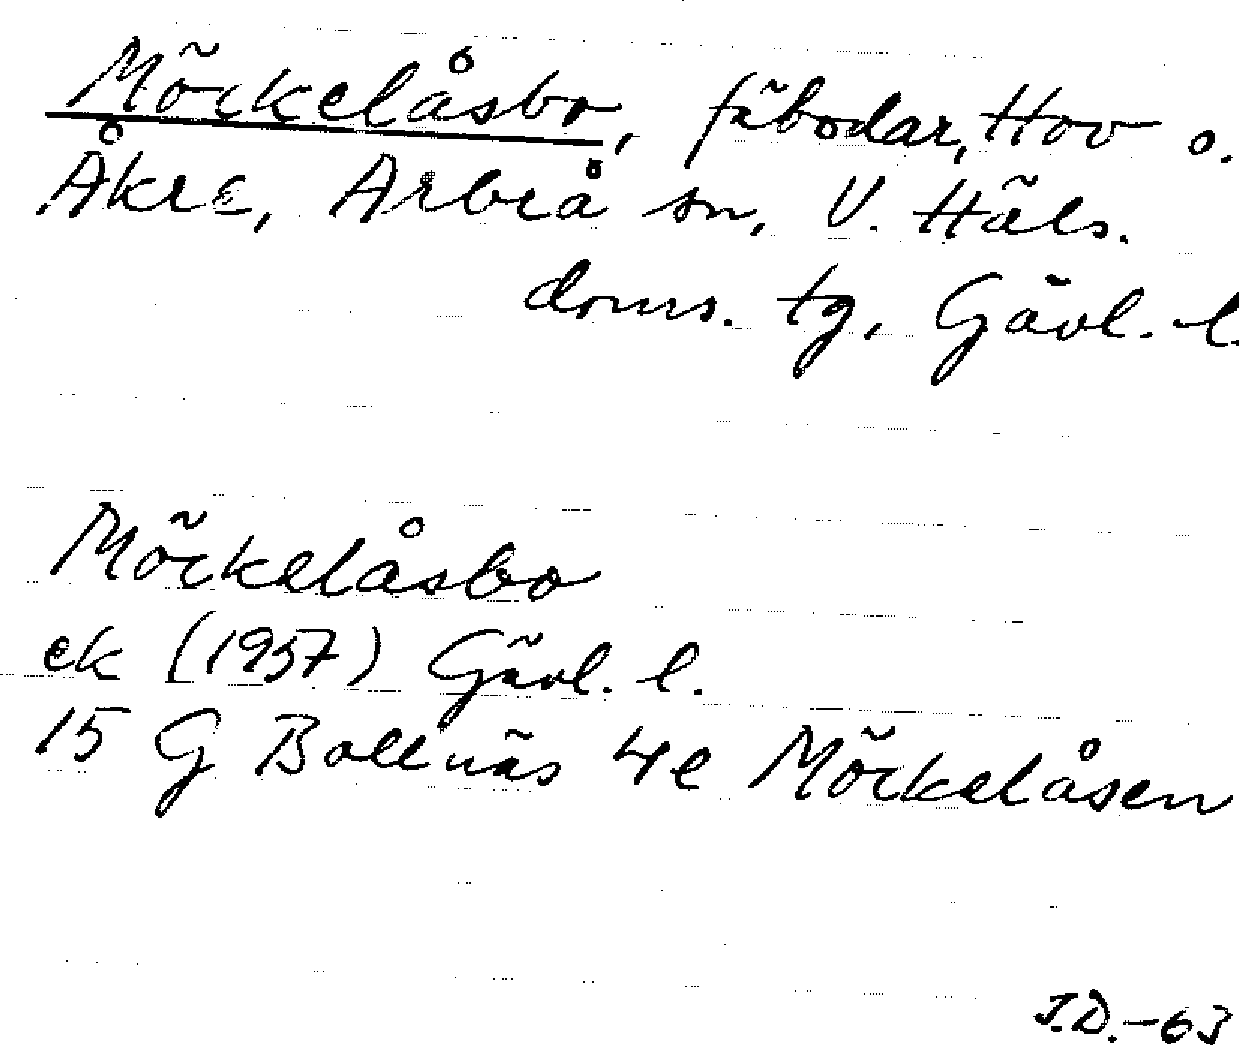 Möckelåsbo, fäbodar, Hov o.
Åkre, Arbrå sn, V. Häls.
doms. tg, Gävl. l.
Möckelåsbo
ek (1957) Gävl. l.
15 G Bollnäs 4e Möckelåsen
I.D.-63